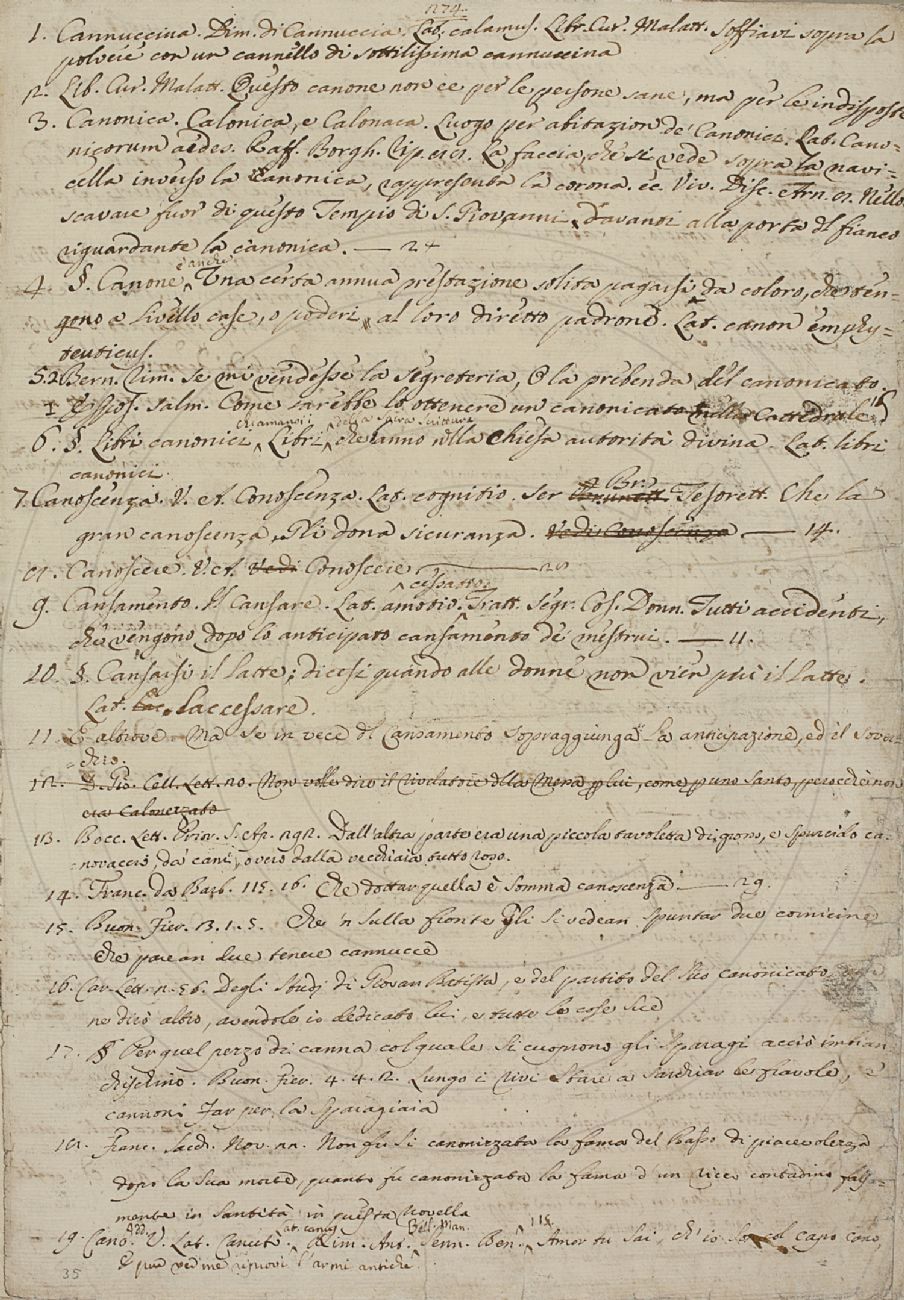 1274.
1. Cannuccina. Dim. di Cannuccia. Lat. calamus. Libr. Cur. Malatt. Soffiavi sopra la
polvere con un cannello di sottilissima cannuccina
2. Lib. Cur. Malatt. Questo canone non ee per le persone sane, ma per le indisposte
3. Canonica. Calonica, e Calonaca. Luogo per abitazion de' Canonici. Lat. Cano-
nicorum aedes. Raff. Borgh. Rip. La faccia, che si vede sopra la navi-
cella inverso la canonica, rappresenta la corona. ec. Viv. Disc. Arn. Nello
scavare fuor di questo Tempio di S. Giovanni, davanti alla porta del fianco
riguardante la canonica. — 24
4. §. Canone, è anche Una certa annua prestazione solita pagarsi da coloro, che ten-
gono a livello case, o poderi, al loro diretto padrone. Lat. canon emphy-
teuticus.
5.2 Bern. Rim. Se mi vendesse la segreteria, O la prebenda del canonicato. 16
1 Esspos. Salm. Come sarebbe lo ottenere un canonicato nella Cattedrale
chiamansi i della sacra scrittura
6. §. Libri canonici, Libri, che anno nella Chiesa autorità divina. Lat. libri
canonici.
7. Canoscenza. V. A. Conoscenza. Lat. cognitio. Ser Br. Tesorett. Che la
gran canoscenza, Gli dona sicuranza. Vedi Conoscenza — 14.
Canoscere. V. A. Vedi Conoscere.
cessatio.
9. Cansamento. Il Cansare. Lat. amotio. Tratt. Segr. Cos. Donn. Tutti accidenti,
che vengono dopo lo anticipato cansamento de' mestrui. — 11.
10. §. Cansarsi il latte; dicesi quando alle donne non vien più il latte.
Lat. lac cessare.
11. E altrove. Ma se in vece del cansamento sopraggiunga la anticipazione, ed il sover-
chio.
12. D. Gio. Cell. Lett. 20. Non volle dire il rivelatore della mena p lui, come p uno santo, perocchè non
era Calonezzato
13. Bocc. Lett. Prior. S. Ap. 292. Dall'altra parte era una piccola tavoletta di grosso, e spurcido ca-
novaccio, da cani, overo dalla vecchiaia tutto roso.
14. Franc. da Barb. 115. 16. Che dottar quella è somma canoscenza — 29.
15. Buon. Fier. 3. 1. 5. Che 'n sulla fronte gli si vedean spuntar due cornicine
che parean due tenere cannucce
16. Car. Lett. n. 56. Degli studj di Giovan Batista, e del partito del suo canonicato
ne dirò altro, avendole io dedicato lui, e tutte le cose sue
17. § Per quel pezzo di canna col quale si cuoprono gli sparagi acciò imbian
chischino. Buon. Fier. 4. 4. 2. Lungo i rivi stare a sarchiar le fravole, e
cannoni far per la sparagiaia
Franc. Sacch. Nov. Non gli si canonizzata la fama del Basso di piacevolezza
dopo la sua morte, quanto fu canonizzata la fama d'un ricco contadino falso-
mente in santità in questa novella
Add. Lat. canus Bell. Man. 115.
19. Cano. V. L. Canuto. Rim. Ant. Senn. Ben. Amor tu sai, ch'io son col capo cano,
E pur ver me rinovi l'armi antiche
35